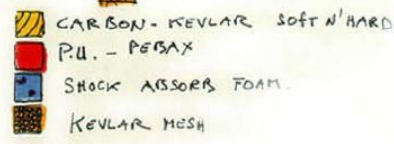 CARBON-KEVLAR SOFT N'HARD
P.U. - PEBAX
SHOCK ABSORB FOAM.
KEVLAR MESH